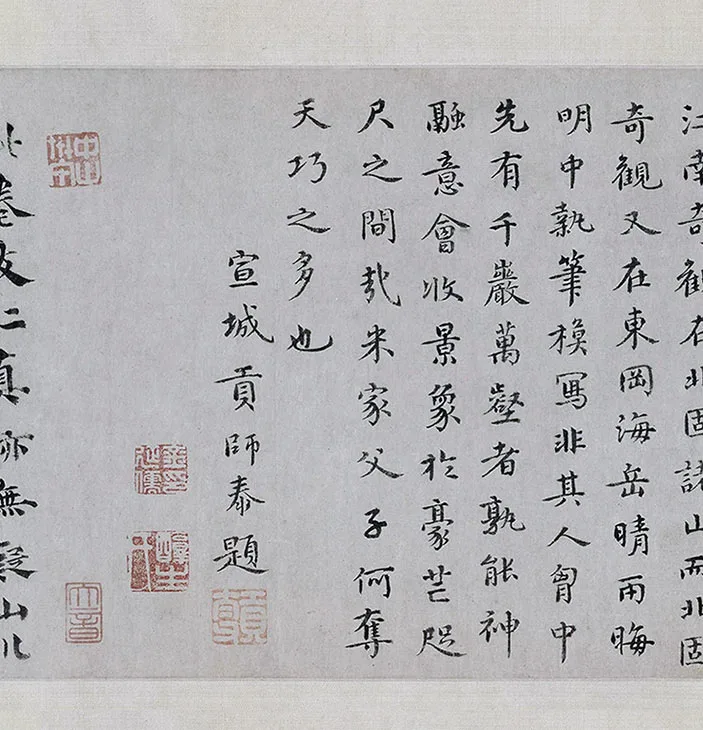 江南奇觀在北固諸山而北固
奇觀又在東岡海岳晴雨晦
明中執筆模寫非其人胷中
先有千巖萬壑者孰能神
融意會收景象於豪芒咫
尺之間哉米家父子何奪
天巧之多也
宣城貢師泰題
此卷真亦無疑山